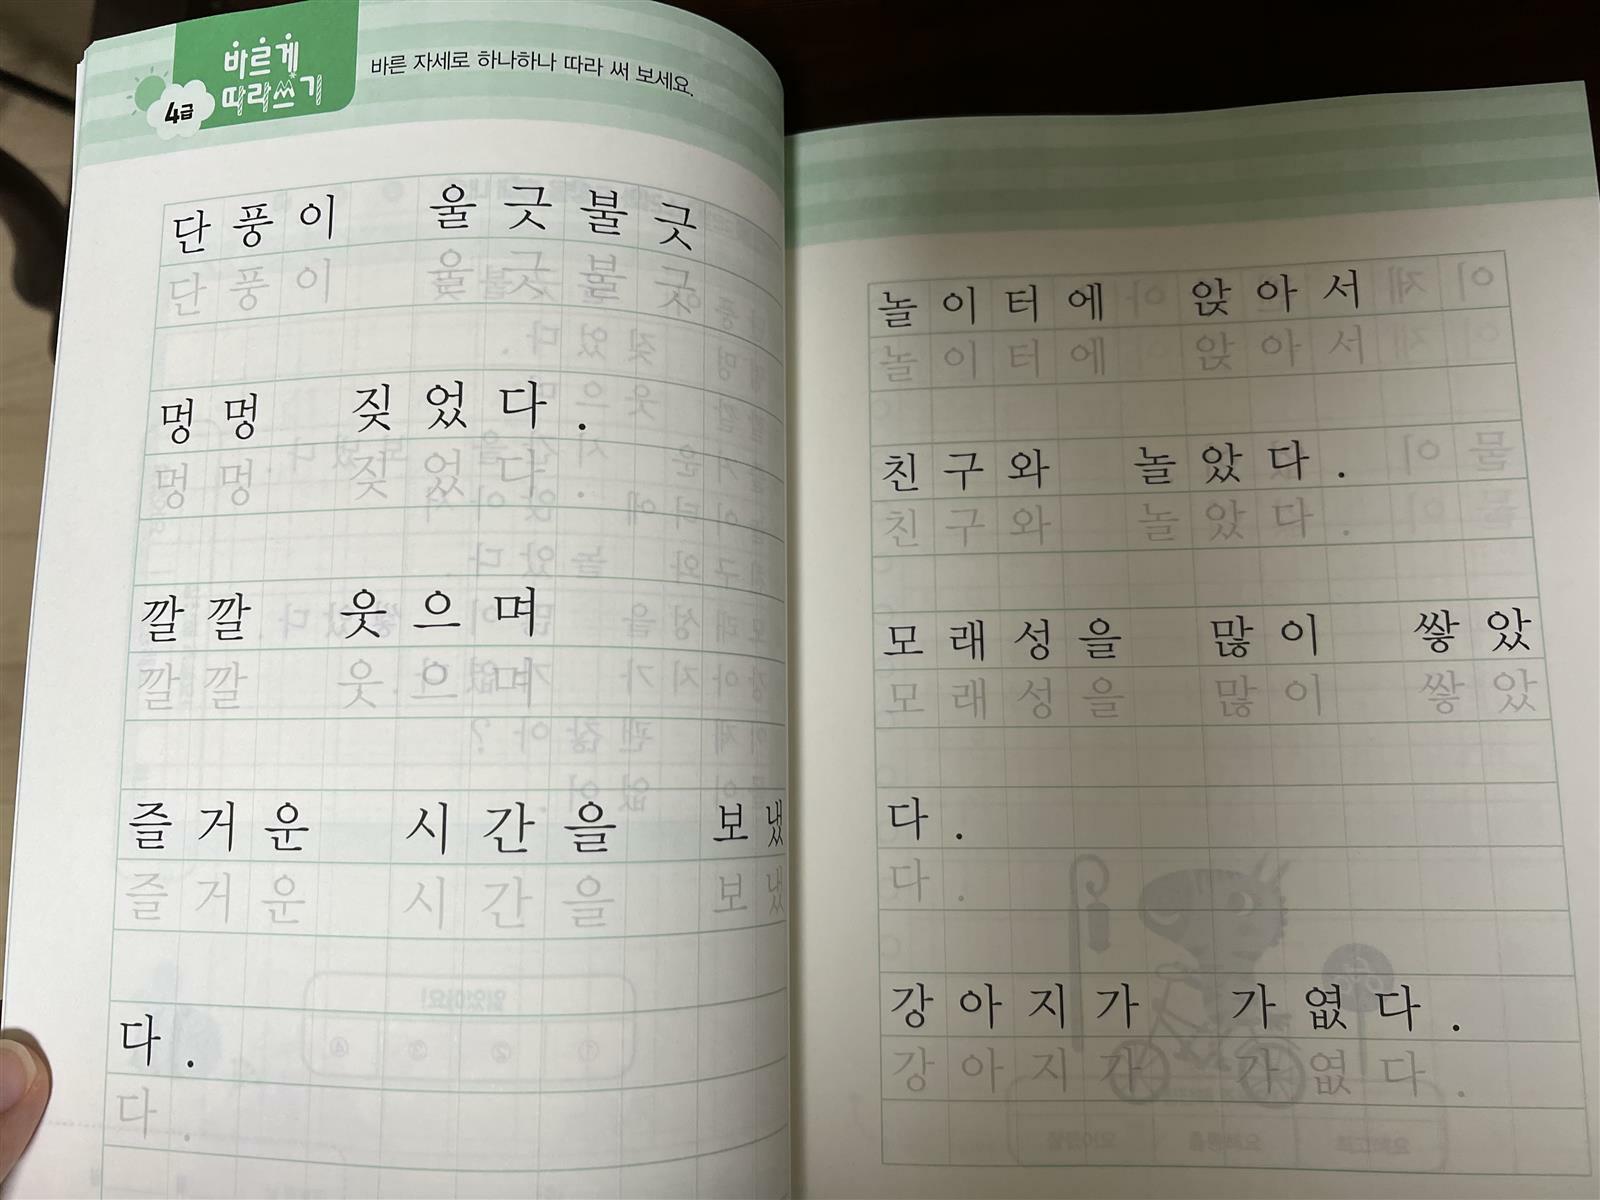 바르게
따라쓰기
4급
바른 자세로 하나하나 따라 써 보세요.
단풍이 울긋불긋
단풍이 울긋불긋
멍멍 짖었다.
멍멍 짖었다.
깔깔 웃으며
깔깔 웃으며
즐거운 시간을 보냈
즐거운 시간을 보냈
다.
다.
놀이터에 앉아서
놀이터에 앉아서
친구와 놀았다.
친구와 놀았다.
모래성을 많이 쌓았
모래성을 많이 쌓았
다.
다.
강아지가 가엾다.
강아지가 가엾다.